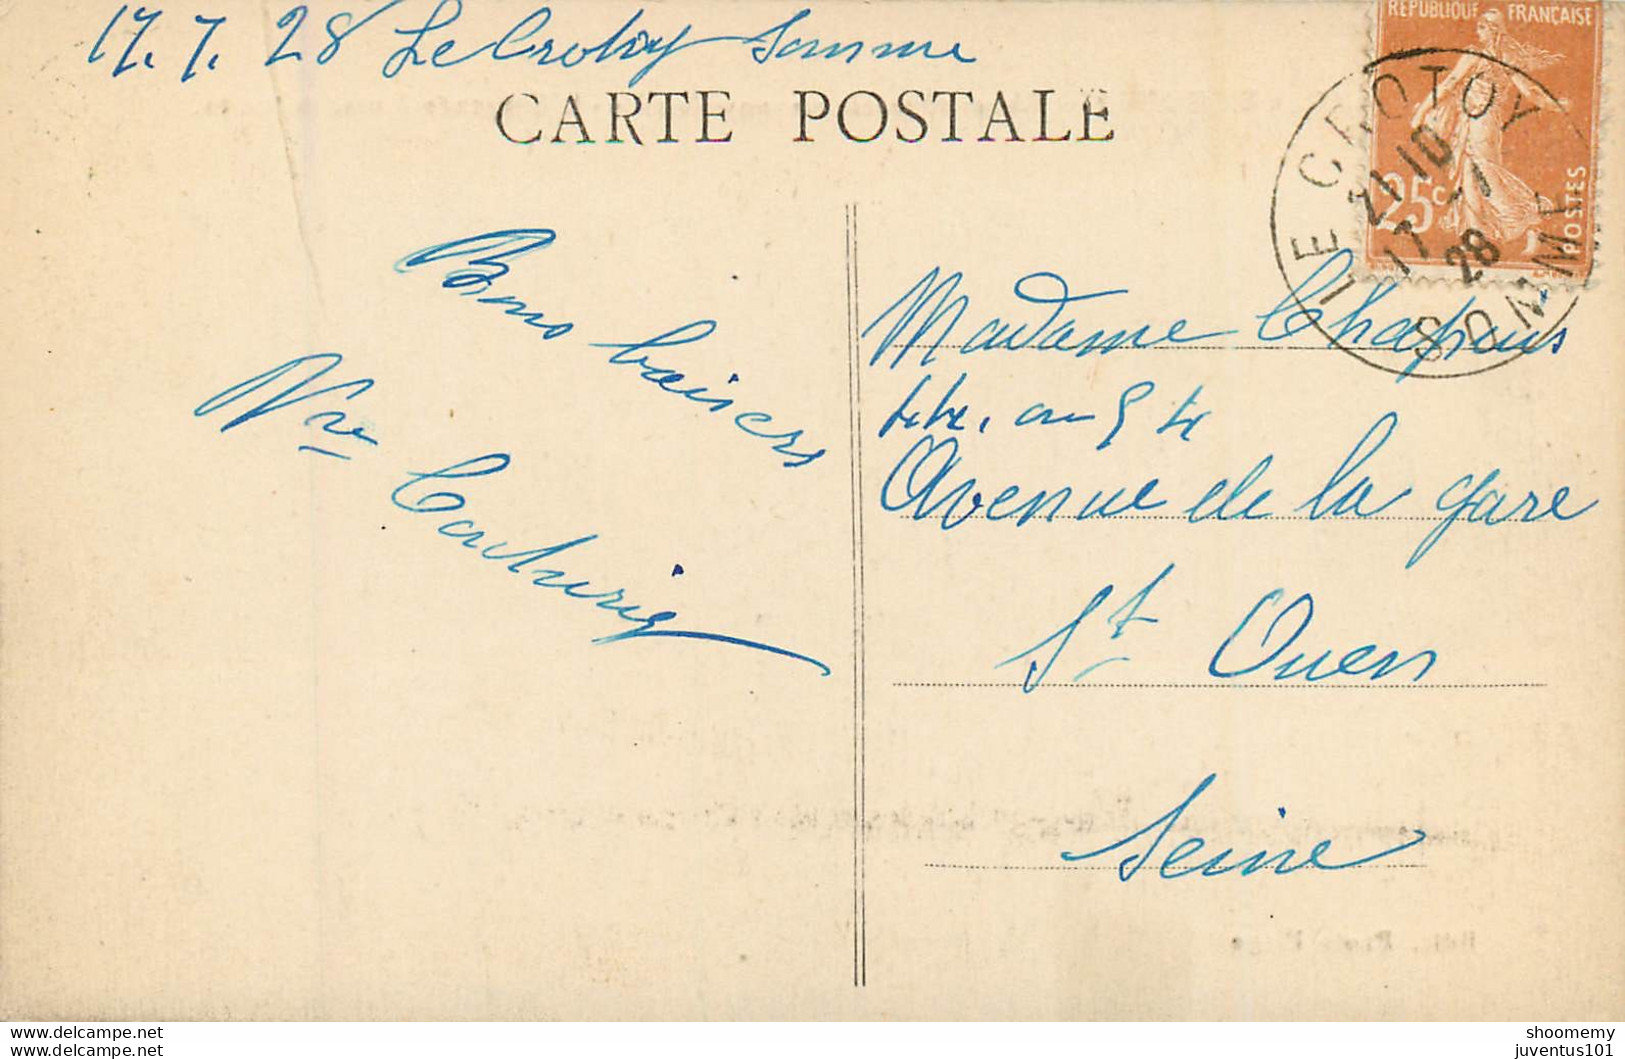 17.7.28 Le Crotoy Somme
CARTE POSTALE
REPUBLIQUE FRANÇAISE
25c
POSTES
LE CROTOY
21 10
17 -7
28
SOMME
Bons baisers
Vve
Madame Chapuis
54
Avenue de la gare
St Ouen
Seine
www.delcampe.net
www.delcampe.net
shoomemy
juventus101